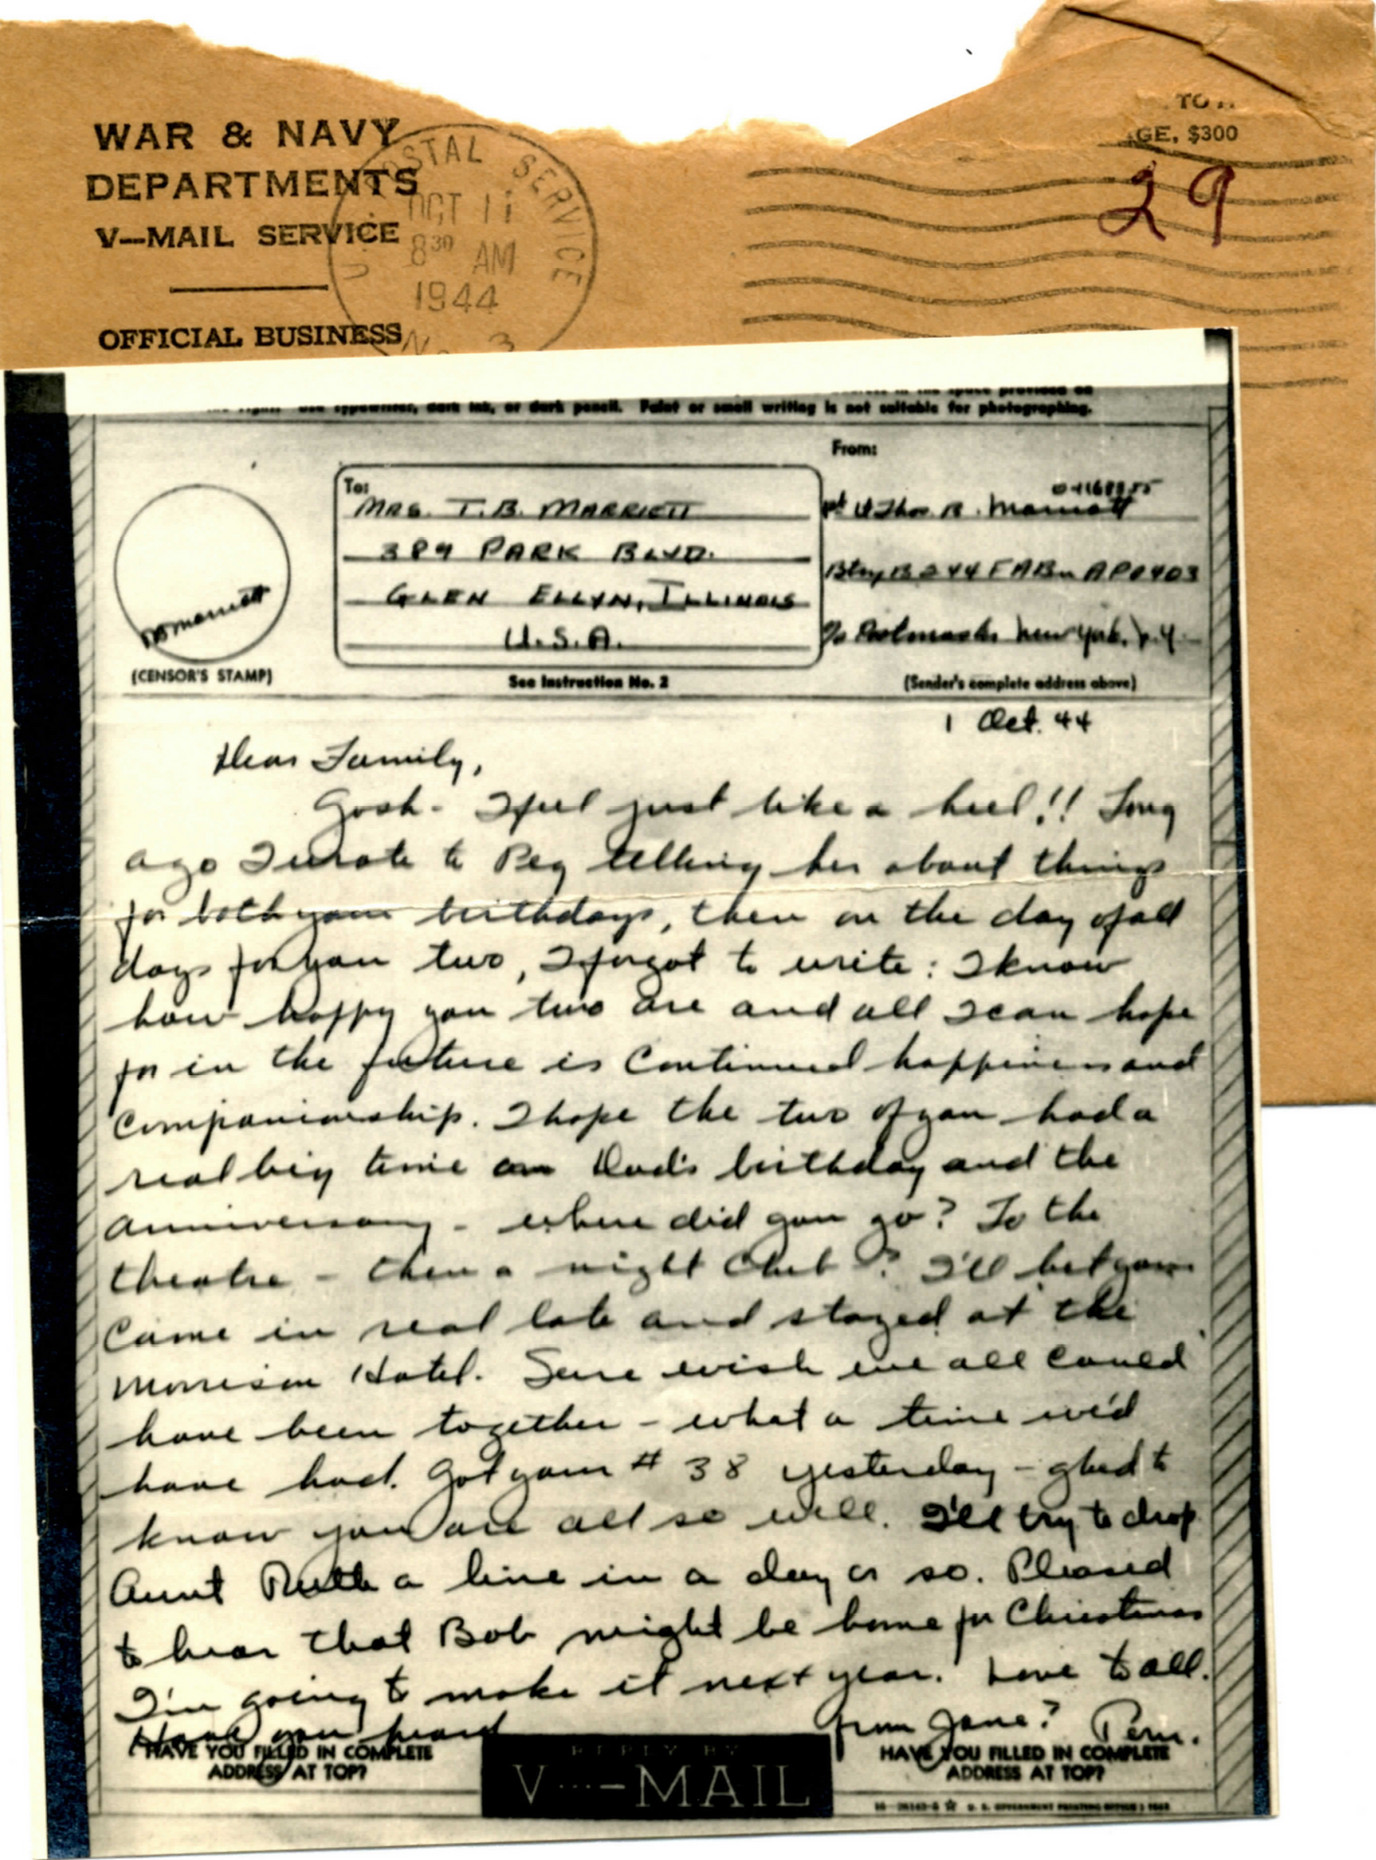 WAR & NAVY
DEPARTMENTS
V—MAIL SERVICE
OFFICIAL BUSINESS
U.S. POSTAL SERVICE
OCT 11
8 30 AM
1944
No. 3
GE, $300
29
in the space provided on
Use typewriter, dark ink, or dark pencil. Faint or small writing is not suitable for photographing.
To:
MRS. T.B. MARRIOTT
389 PARK BLVD.
GLEN ELLYN, ILLINOIS
U.S.A.
See Instruction No. 2
From:
Lt Thos. B. Marriott
Btry B 244 FABn APO 403
c/o Postmaster New York, N.Y.
(Sender's complete address above)
TB Marriott
(CENSOR'S STAMP)
1 Oct. 44
Dear Family,
Gosh - I feel just like a heel!! Long
ago I wrote to Peg telling her about things
for both your birthdays, then on the day of all
days for you two, I forgot to write: I know
how happy you two are and all I can hope
for in the future is continued happiness and
companionship. I hope the two of you had a
real big time on Dad's birthday and the
anniversary - where did you go? To the
theatre - then a night club? I'll bet you
came in real late and stayed at the
Morrison Hotel. Sure wish we all could
have been together - what a time we'd
have had. Got your # 38 yesterday - glad to
know you are all so well. I'll try to drop
Aunt Ruth a line in a day or so. Pleased
to hear that Bob might be home for Christmas
I'm going to make it next year! Love to all.
Have you heard from Jane? Tom.
HAVE YOU FILLED IN COMPLETE
ADDRESS AT TOP?
REPLY BY
V···—MAIL
HAVE YOU FILLED IN COMPLETE
ADDRESS AT TOP?
U. S. GOVERNMENT PRINTING OFFICE